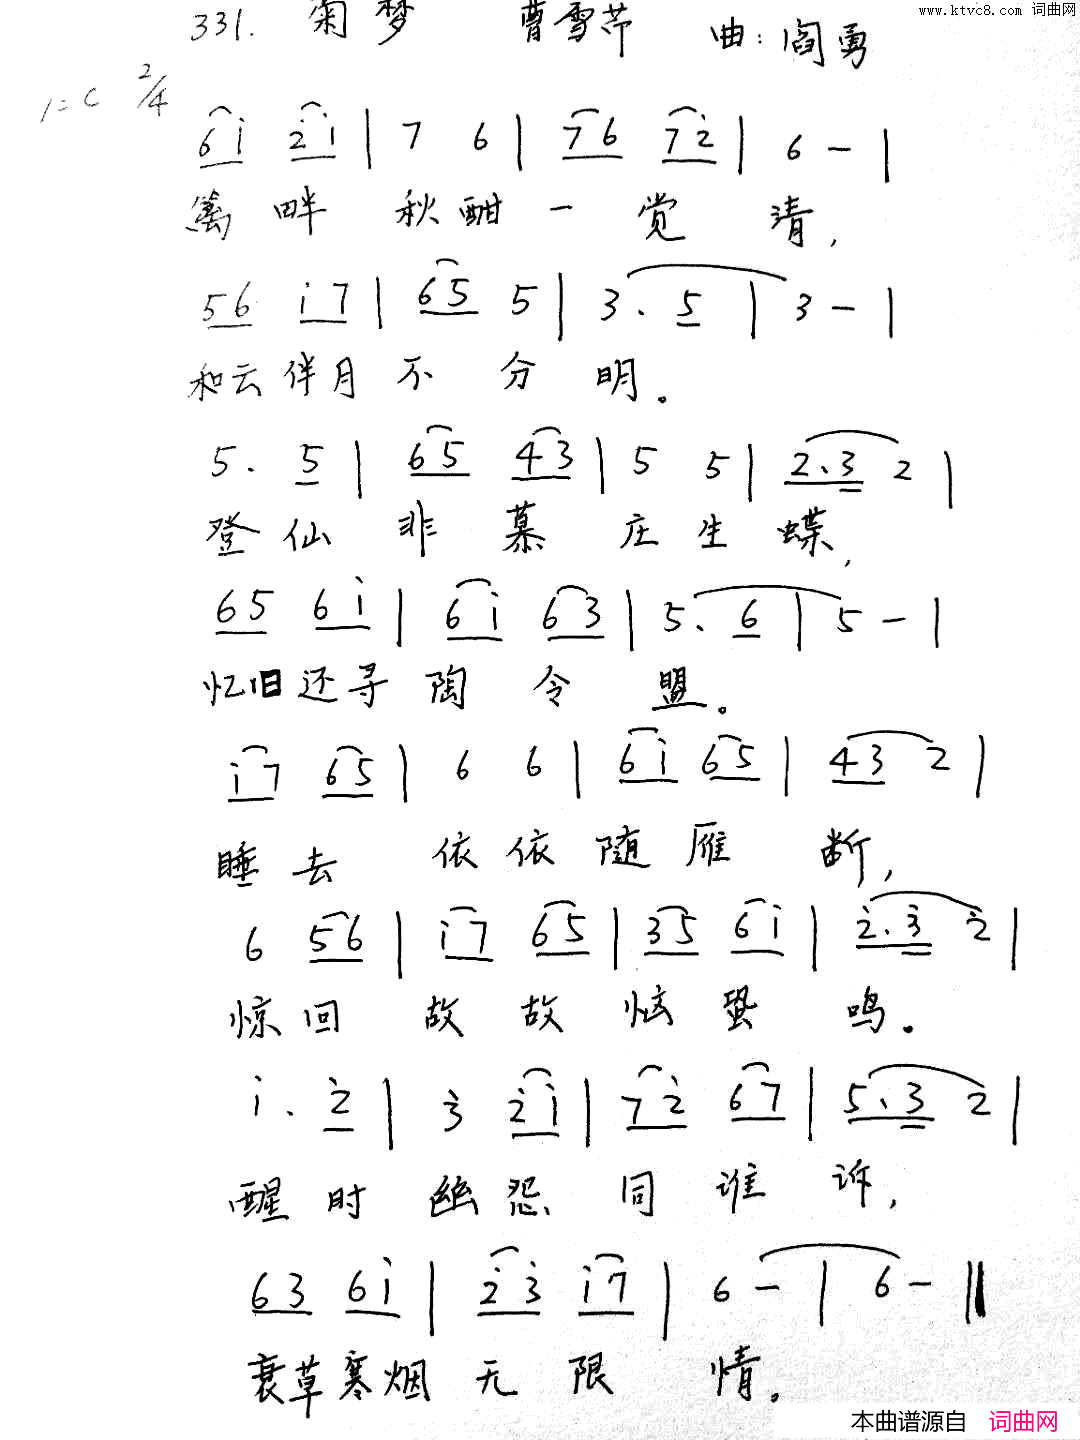 www.ktvc8.com 词曲网
331. 菊梦 曹雪芹 曲:阎勇
1=C 2/4
6i 2i | 7 6 | 76 72 | 6 - |
篱畔秋酣一觉清,
56 i7 | 65 5 | 3. 5 | 3 - |
和云伴月不分明。
5. 5 | 65 43 | 5 5 | 2.3 2 |
登仙非慕庄生蝶,
65 6i | 6i 63 | 5. 6 | 5 - |
忆旧还寻陶令盟。
i7 65 | 6 6 | 6i 65 | 43 2 |
睡去依依随雁断,
6 56 | i7 65 | 35 6i | 2.3 2 |
惊回故故恼蛩鸣。
i. 2 | 3 2i | 72 67 | 5.3 2 |
醒时幽怨同谁诉,
63 6i | 23 i7 | 6 - | 6 - ||
衰草寒烟无限情。
本曲谱源自 词曲网